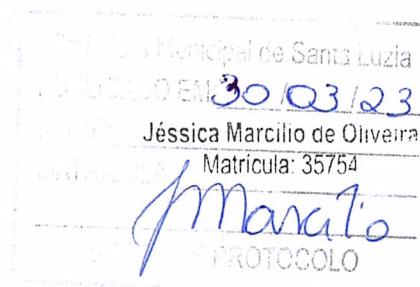 Municipal de Santa Luzia
O EM 30/03/23
Jéssica Marcílio de Oliveira
Matrícula: 35754
JMarcílio
PROTOCOLO